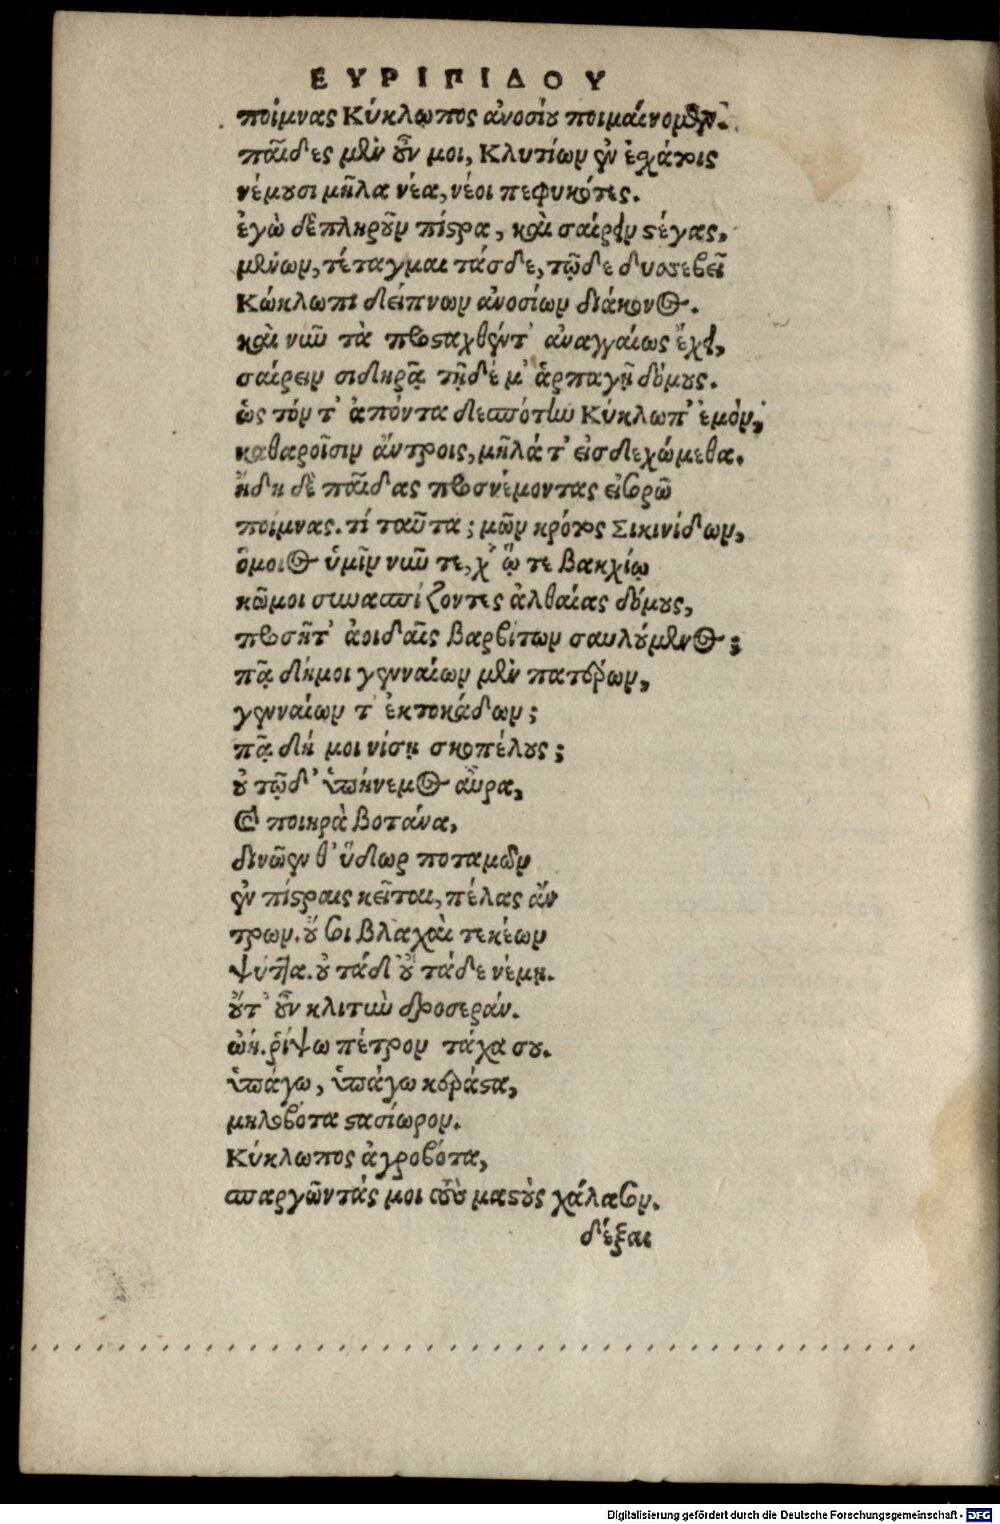 ΕΥΡΙΠΙΔΟΥ
ποίμνας Κύκλωπος ἀνοσίου ποιμαίνομεν.
παῖδες μὲν οὖν μοι, Κλυτίων ἐν ἐχάτοις
νέμουσι μῆλα νέα, νέοι πεφυκότες.
ἐγὼ δὲ πληροῦν πίστρα, καὶ σαίρειν στέγας,
μένων, τέταγμαι τάσδε, τῷδε δυσσεβεῖ
Κώκλωπι δείπνων ἀνοσίων διάκονος.
καὶ νῦν τὰ προσταχθέντ' ἀναγγαίως ἔχει,
σαίρειν σιδηρᾷ τῇδέ μ' ἁρπαγῇ δόμους.
ὡς τόν τ' ἀπόντα δεσπότην Κύκλωπ' ἐμὸν,
καθαροῖσιν ἄντροις, μῆλά τ' εἰσδεχώμεθα.
ἤδη δὲ παῖδας προσνέμοντας εἰσορῶ
ποίμνας. τί ταῦτα; μῶν κρότος Σικινίδων,
ὅμοιος ὑμῖν νῦν τε, χ' ᾧ τε βακχίῳ
κῶμοι συνασπίζοντες ἀλθαίας δόμους,
προσῆτ' ἀοιδαῖς βαρβίτων σαυλούμενος;
πᾷ δήμοι γενναίων μὲν πατέρων,
γενναίων τ' ἐκτοκάδων;
πᾷ δή μοι νίσῃ σκοπέλους;
οὐ τῷδ' ὑπήνεμος αὔρα,
καὶ ποιηρὰ βοτάνα,
δινῶεν θ' ὕδωρ ποταμῶν
ἐν πίστραις κεῖται, πέλας ἄν
τρων. οὔ σοι βλαχαὶ τεκέων
ψύττα. οὐ τάδ' οὐ τάδε νέμῃ.
οὔτ' οὖν κλιτὺν δροσεράν.
ὠή. ῥίψω πέτρον τάχα σου.
ὑπάγω, ὑπάγω κεράστα,
μηλοβότα στασίωρον.
Κύκλωπος ἀγροβότα,
σπαργῶντάς μοι τοὺς μαστοὺς χάλασον.
δέξαι
Digitalisierung gefördert durch die Deutsche Forschungsgemeinschaft - DFG